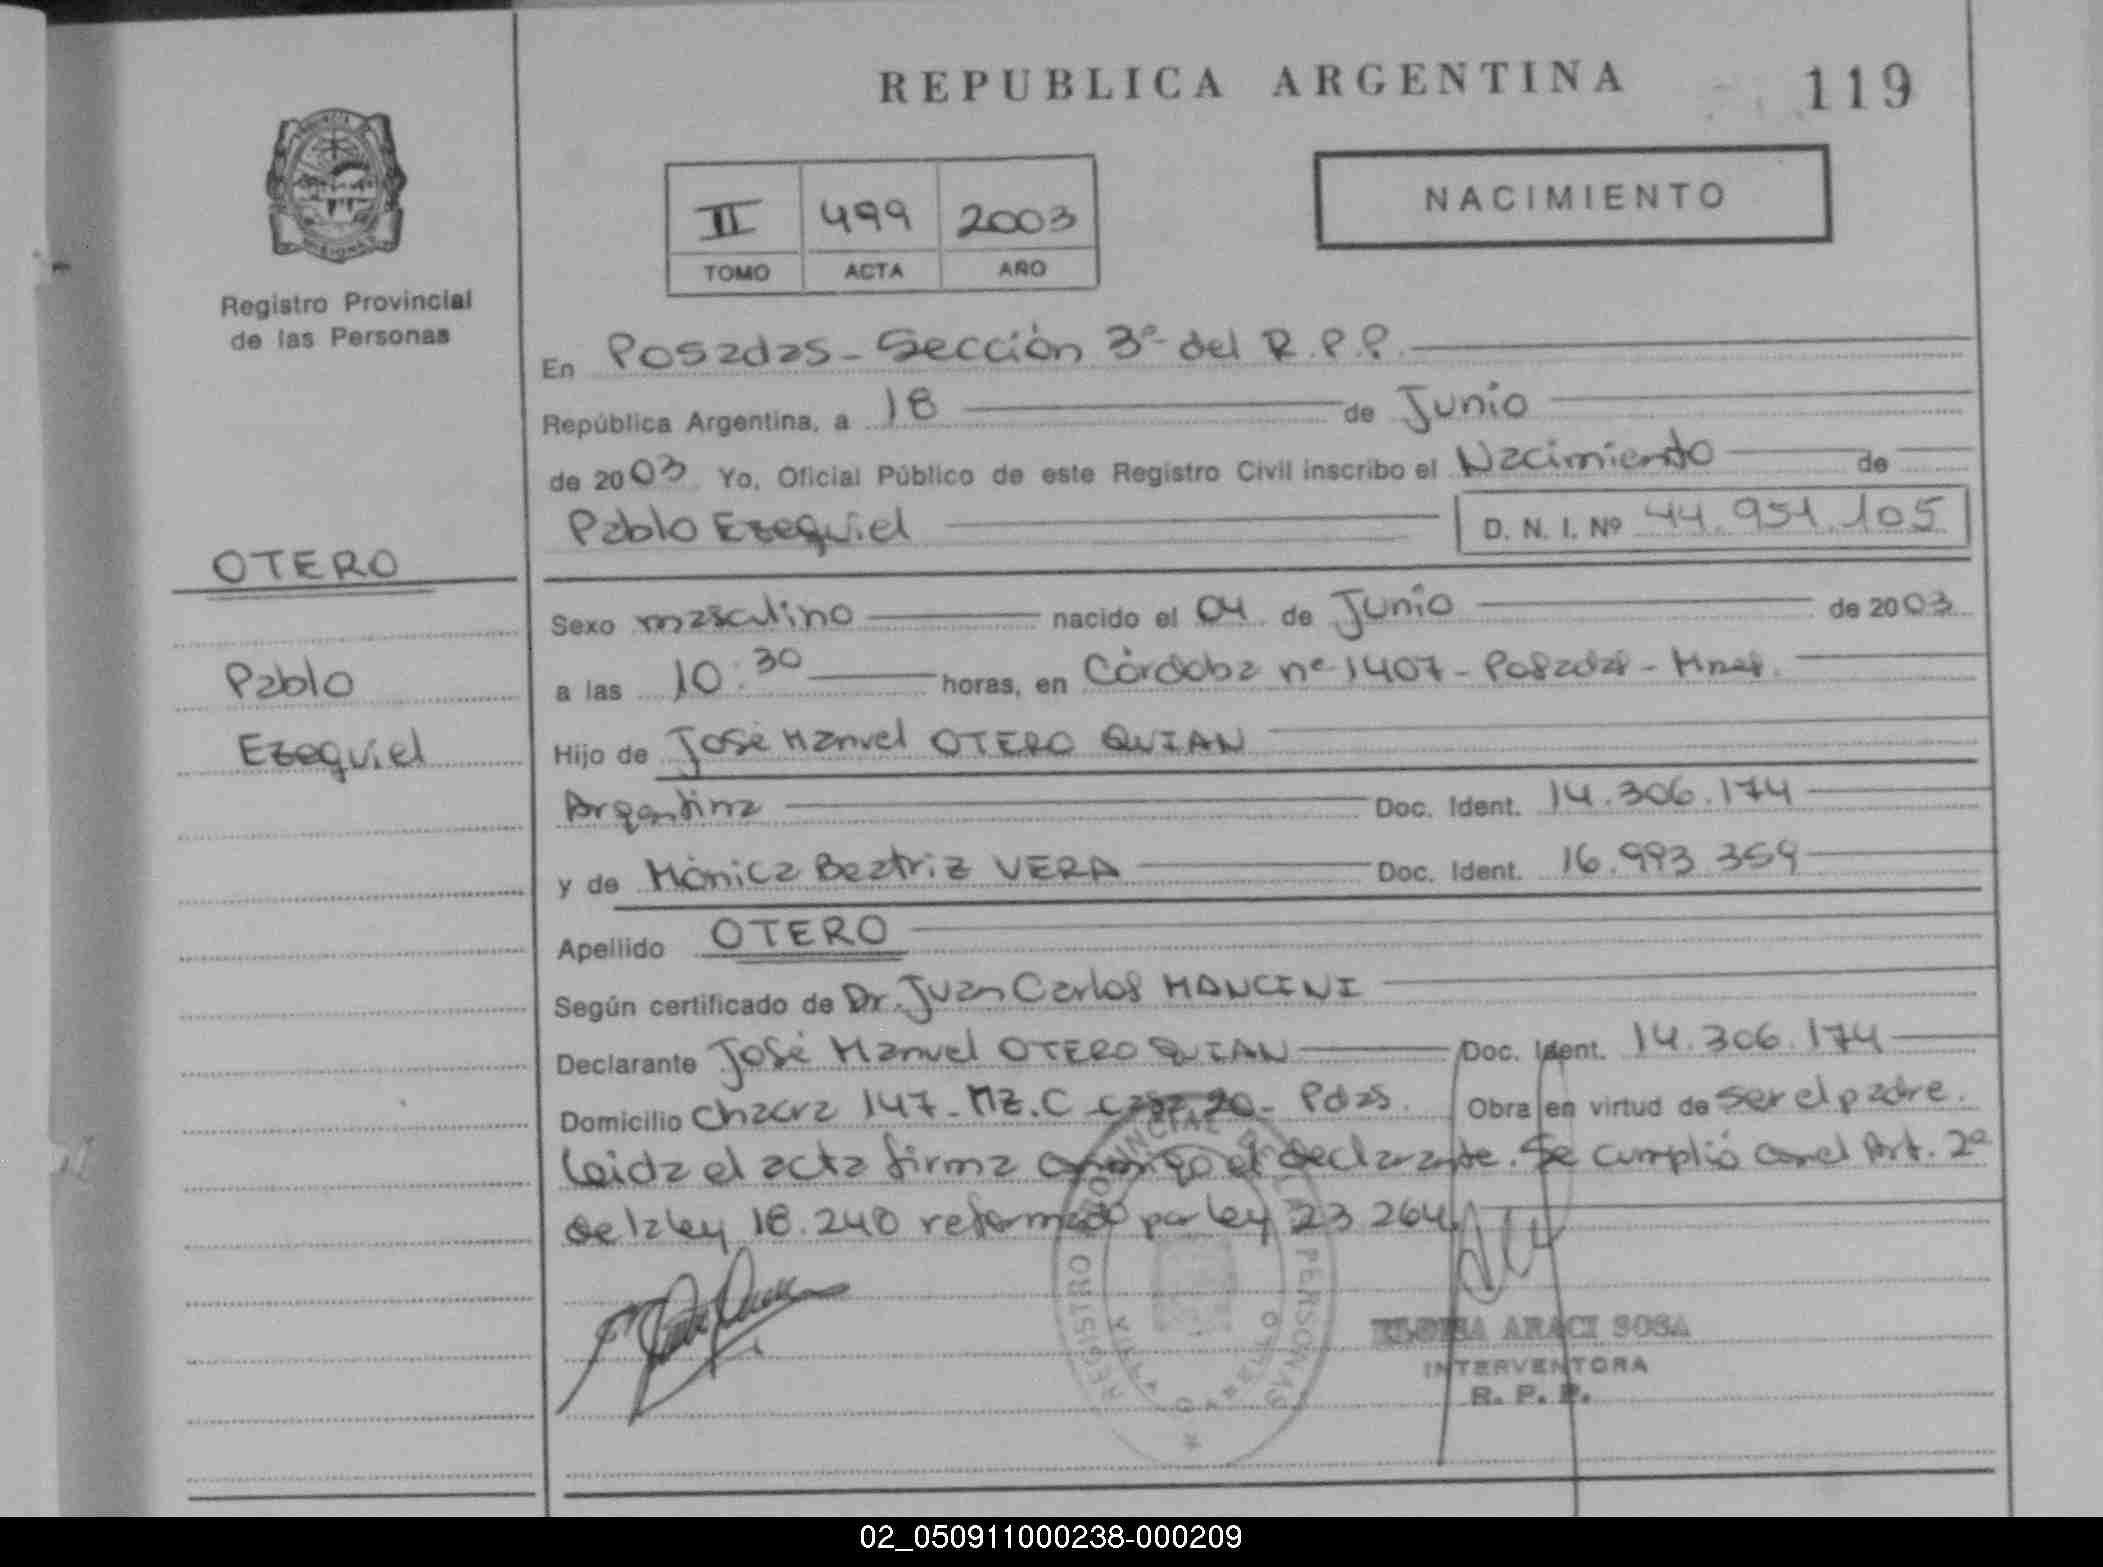 REPUBLICA ARGENTINA
119
NACIMIENTO
II 499 2003
TOMO ACTA AÑO
Registro Provincial
de las Personas
En Posadas - Sección 3ª del R.P.P.
República Argentina, a 18 de Junio
de 2003 Yo, Oficial Público de este Registro Civil inscribo el Nacimiento de
Pablo Ezequiel D. N. I. Nº 44.951.105
OTERO
Pablo
Ezequiel
Sexo masculino nacido el 04 de Junio de 2003
a las 10:30 horas, en Córdoba nº 1407 - Posadas - Mnes.
Hijo de José Manuel OTERO QUIAN
Argentina Doc. Ident. 14.306.174
y de Mónica Beatriz VERA Doc. Ident. 16.993.359
Apellido OTERO
Según certificado de Dr. Juan Carlos MANCINI
Declarante José Manuel OTERO QUIAN Doc. Ident. 14.306.174
Domicilio Chacra 147 - Mz. C casa 20 - Pdas. Obra en virtud de ser el padre.
Leida el acta firma conmigo el declarante. Se cumplió con el Art. 2º
de la ley 18.248 reformado por ley 23.264
REGISTRO PROVINCIAL DE LAS PERSONAS
ARACI SOSA
INTERVENTORA
R. P. P.
02_050911000238-000209